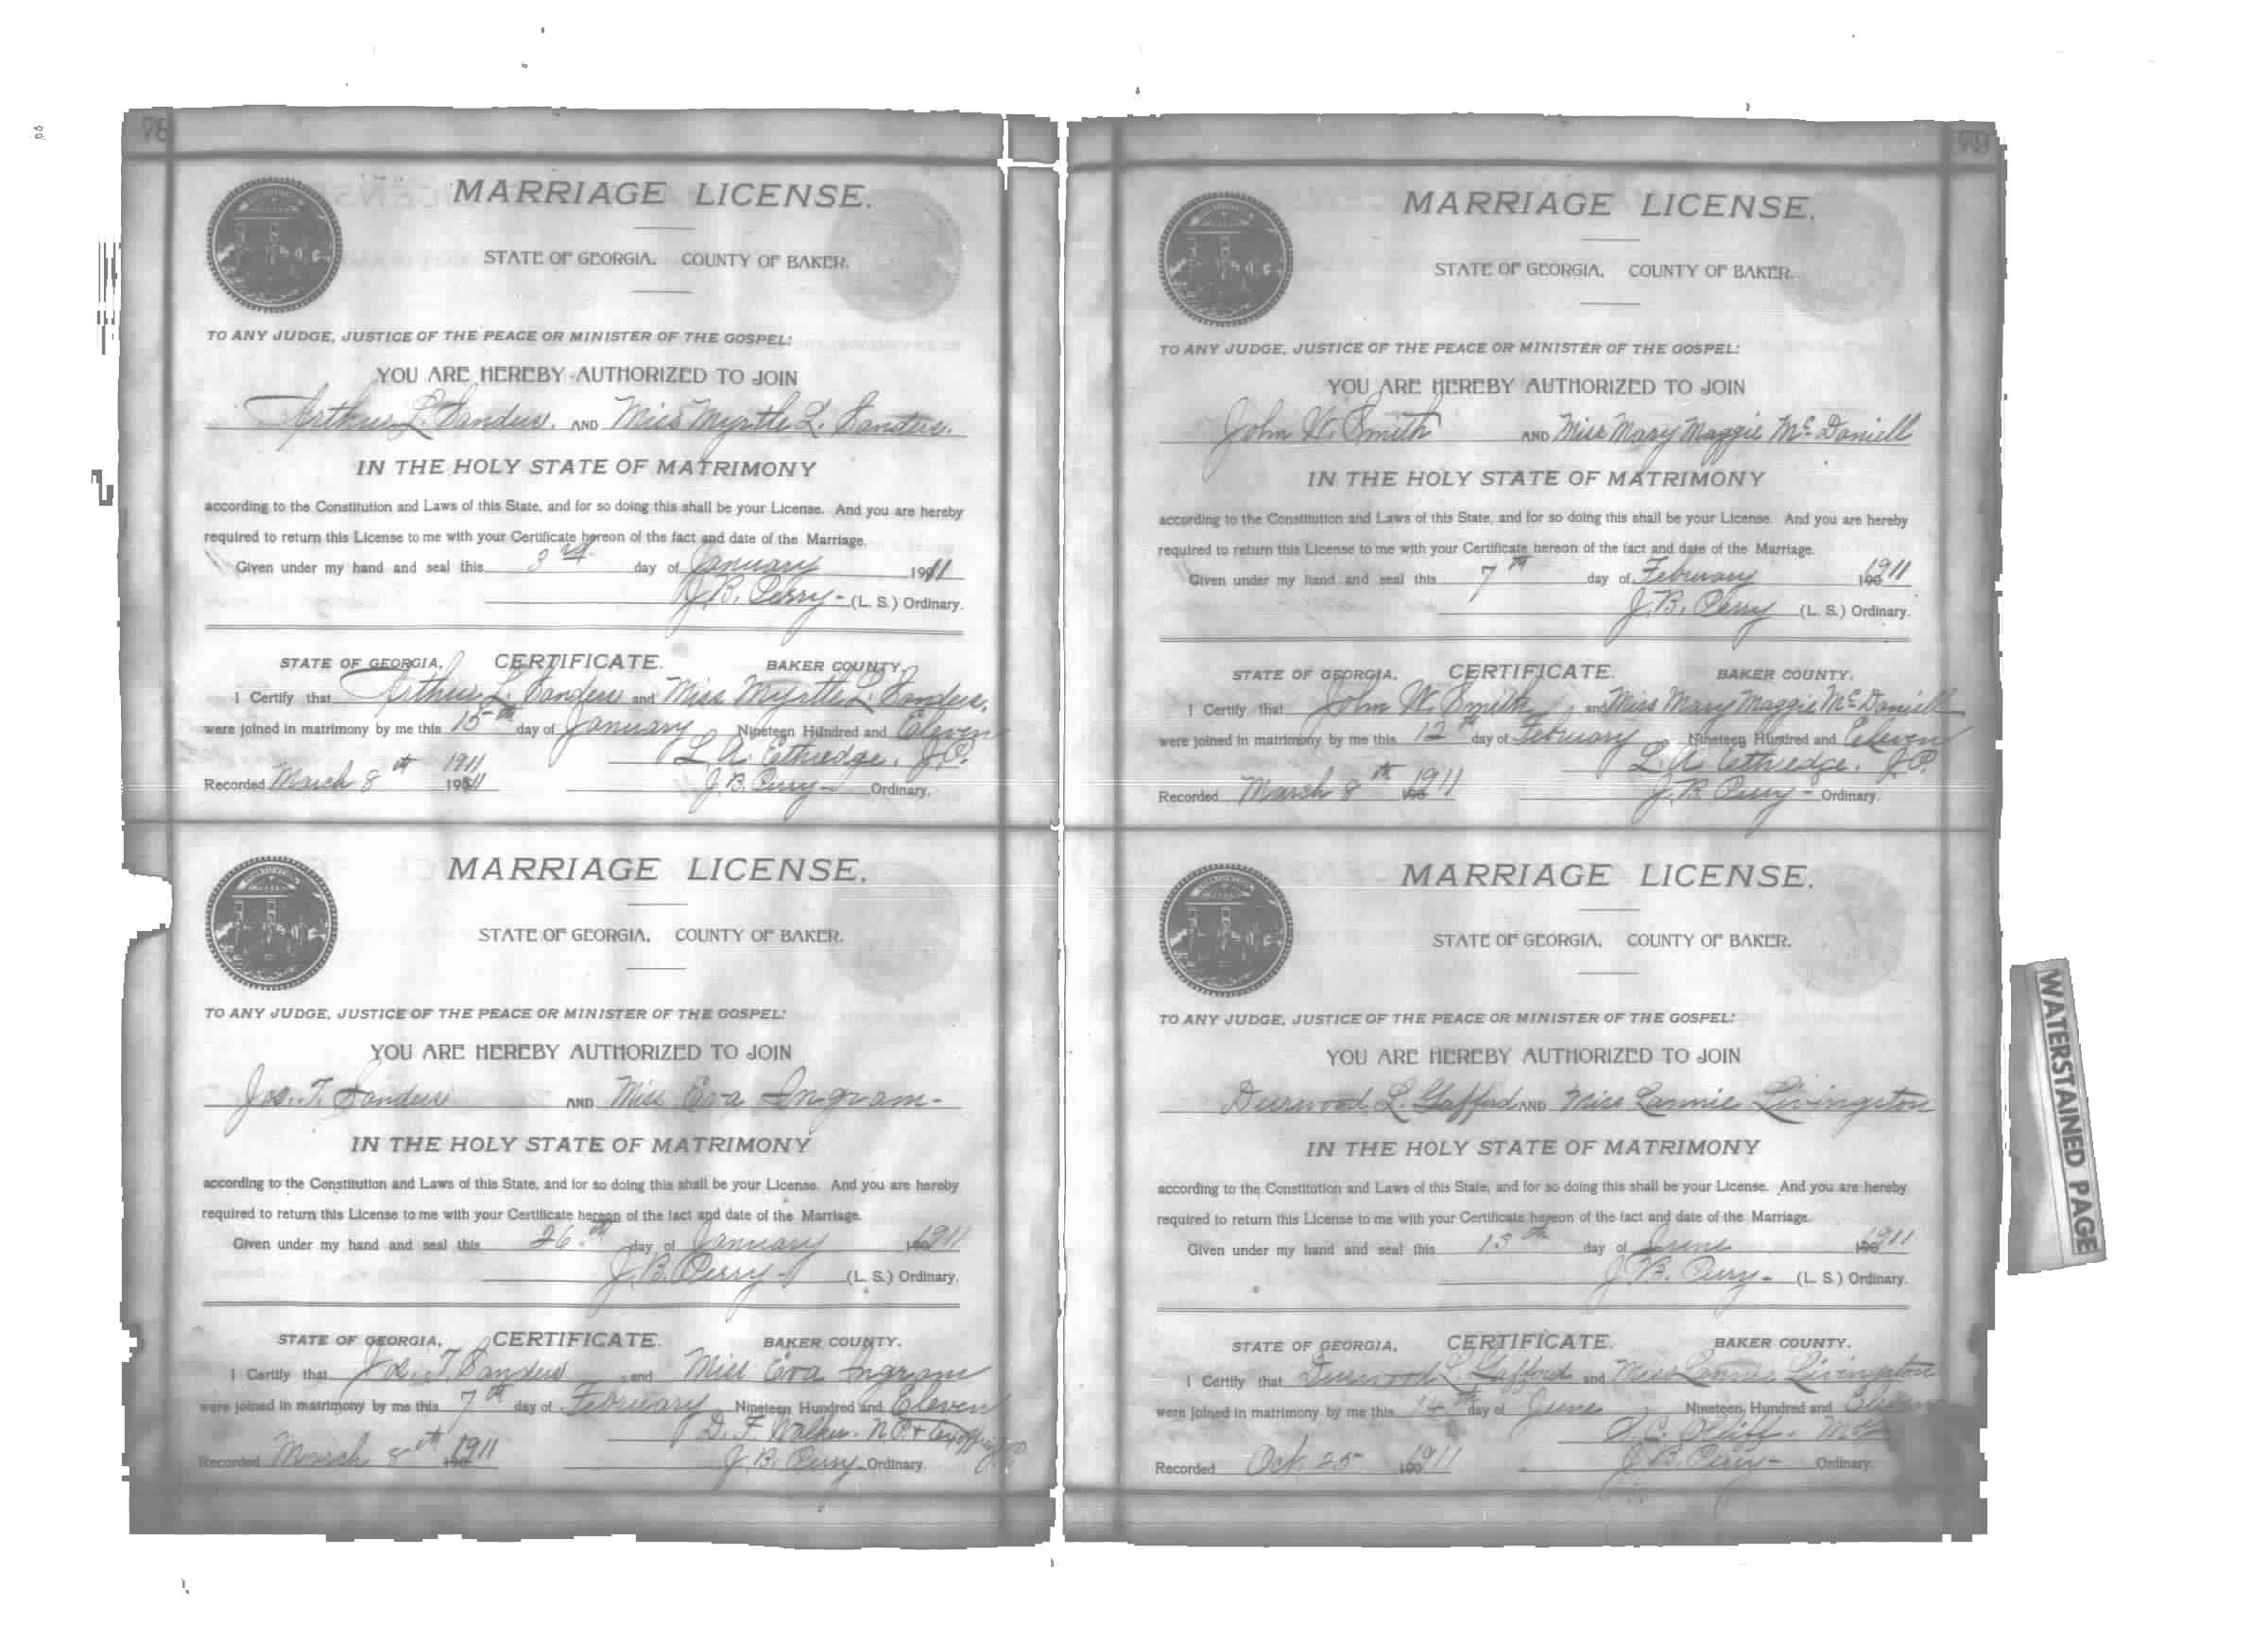 78
MARRIAGE LICENSE.
STATE OF GEORGIA. COUNTY OF BAKER.
TO ANY JUDGE, JUSTICE OF THE PEACE OR MINISTER OF THE GOSPEL:
YOU ARE HEREBY AUTHORIZED TO JOIN
Arthur L. Sanders. AND Miss Myrtle L. Sanders.
IN THE HOLY STATE OF MATRIMONY
according to the Constitution and Laws of this State, and for so doing this shall be your License. And you are hereby
required to return this License to me with your Certificate hereon of the fact and date of the Marriage.
Given under my hand and seal this 3rd day of January 1911
J. B. Perry - (L. S.) Ordinary.
STATE OF GEORGIA, CERTIFICATE. BAKER COUNTY.
I Certify that Arthur L. Sanders and Miss Myrtle L. Sanders.
were joined in matrimony by me this 15th day of January Nineteen Hundred and Eleven
L. A. Ethredge. J.P.
Recorded March 8th 1911 J. B. Perry - Ordinary.
MARRIAGE LICENSE.
STATE OF GEORGIA, COUNTY OF BAKER.
TO ANY JUDGE, JUSTICE OF THE PEACE OR MINISTER OF THE GOSPEL:
YOU ARE HEREBY AUTHORIZED TO JOIN
Jos. T. Sanders AND Miss Eva Ingram-
IN THE HOLY STATE OF MATRIMONY
according to the Constitution and Laws of this State, and for so doing this shall be your License. And you are hereby
required to return this License to me with your Certificate hereon of the fact and date of the Marriage.
Given under my hand and seal this 26.th day of January 1911
J. B. Perry - (L. S.) Ordinary.
STATE OF GEORGIA, CERTIFICATE. BAKER COUNTY.
I Certify that Jos. T. Sanders and Miss Eva Ingram
were joined in matrimony by me this 7th day of February Nineteen Hundred and Eleven
D. F. Walker. N.P. +
Recorded March 8th 1911 J. B. Perry - Ordinary.
MARRIAGE LICENSE.
STATE OF GEORGIA, COUNTY OF BAKER.
TO ANY JUDGE, JUSTICE OF THE PEACE OR MINISTER OF THE GOSPEL:
YOU ARE HEREBY AUTHORIZED TO JOIN
John W. Smith AND Miss Mary Maggie McDaniell
IN THE HOLY STATE OF MATRIMONY
according to the Constitution and Laws of this State, and for so doing this shall be your License. And you are hereby
required to return this License to me with your Certificate hereon of the fact and date of the Marriage.
Given under my hand and seal this 7th day of February 1911
J. B. Perry (L. S.) Ordinary.
STATE OF GEORGIA, CERTIFICATE. BAKER COUNTY.
I Certify that John W. Smith and Miss Mary Maggie McDaniell
were joined in matrimony by me this 12th day of February Nineteen Hundred and Eleven
L. A. Ethredge. J.P.
Recorded March 8th 1911 J. B. Perry - Ordinary.
MARRIAGE LICENSE.
STATE OF GEORGIA, COUNTY OF BAKER.
TO ANY JUDGE, JUSTICE OF THE PEACE OR MINISTER OF THE GOSPEL:
YOU ARE HEREBY AUTHORIZED TO JOIN
Durwood L. Gafford AND Miss Lannie Livingston
IN THE HOLY STATE OF MATRIMONY
according to the Constitution and Laws of this State, and for so doing this shall be your License. And you are hereby
required to return this License to me with your Certificate hereon of the fact and date of the Marriage.
Given under my hand and seal this 13th day of June 1911
J. B. Perry - (L. S.) Ordinary.
STATE OF GEORGIA, CERTIFICATE. BAKER COUNTY.
I Certify that Durwood L. Gafford and Miss Lannie Livingston
were joined in matrimony by me this 14th day of June Nineteen Hundred and Eleven
Recorded Oct. 25 1911 J. B. Perry - Ordinary.
WATERSTAINED PAGE